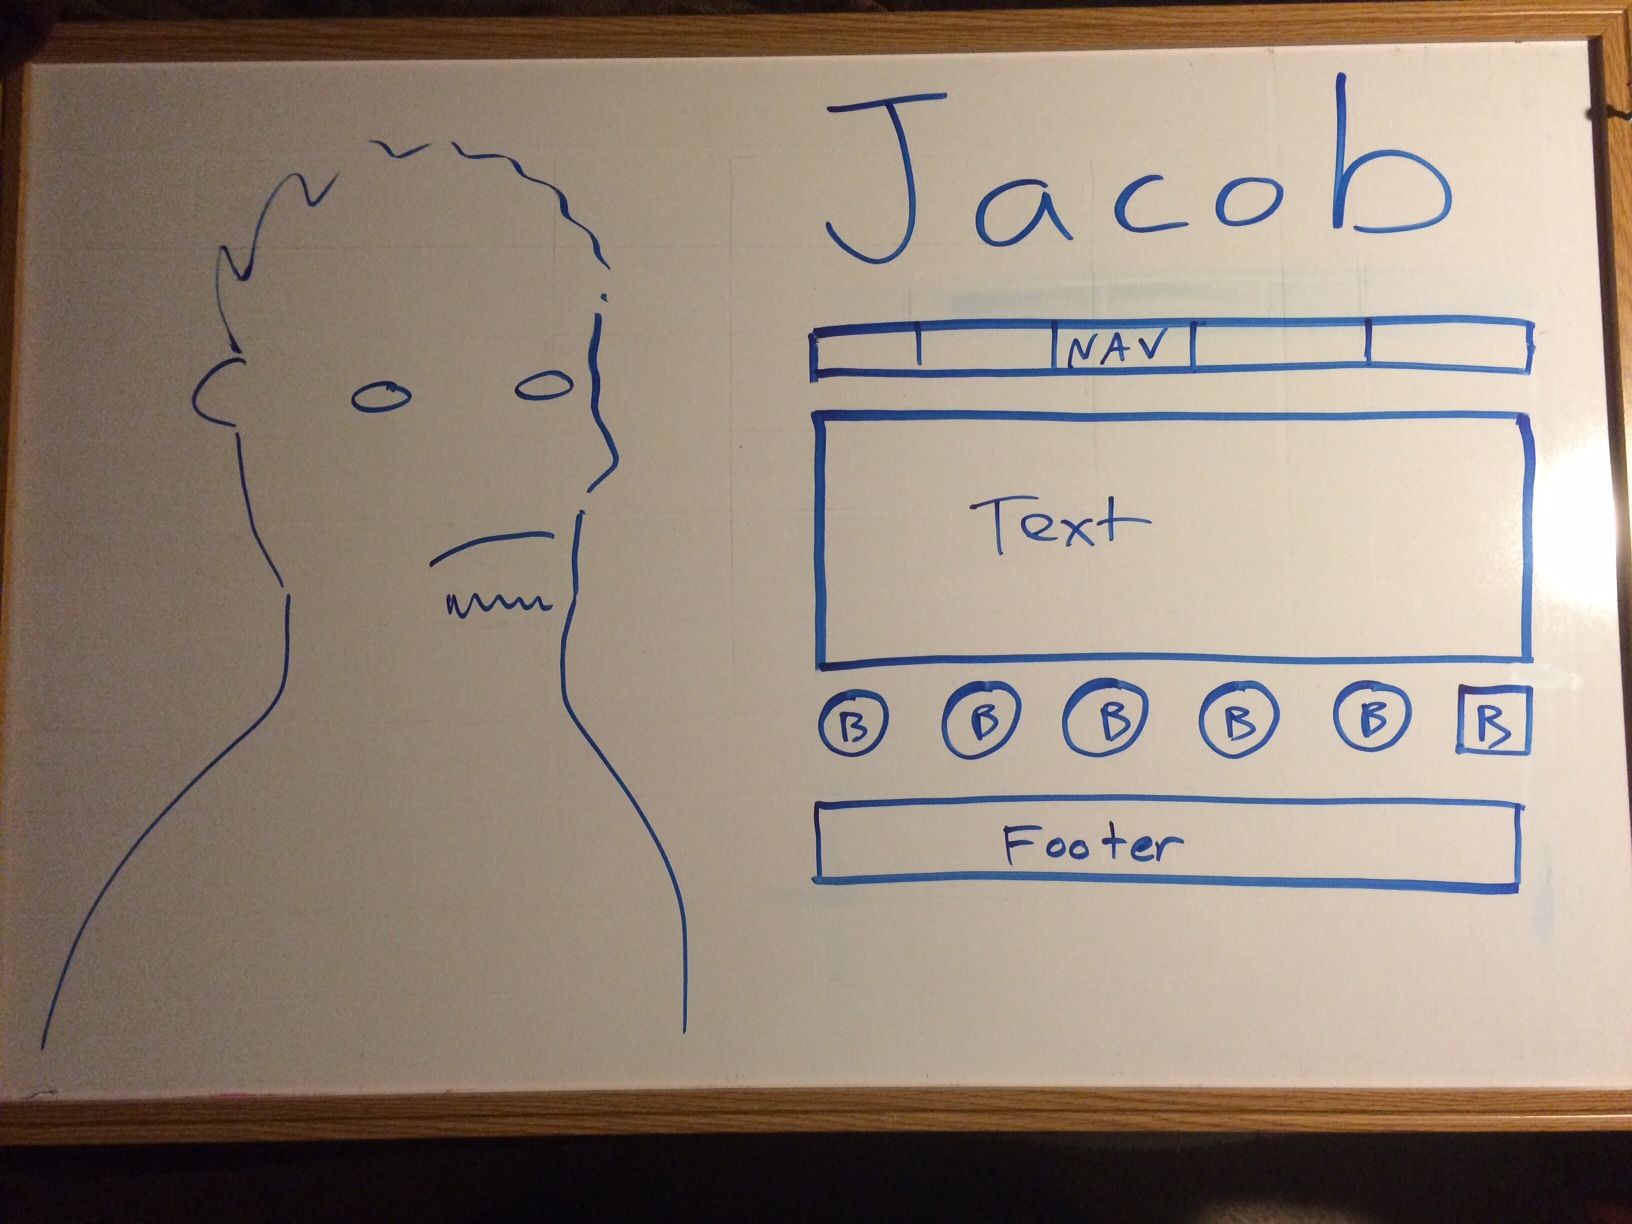 Jacob
NAV
Text
B B B B B B
Footer